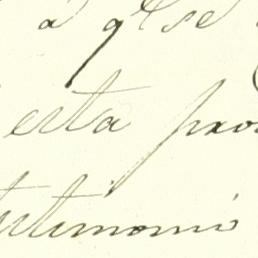 a qe se
esta pro
testimonio